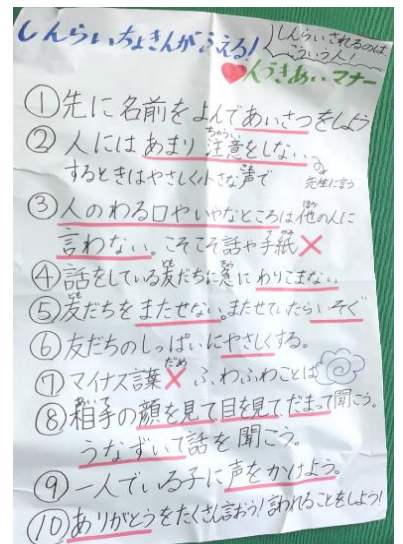 しんらいちょきんがふえる!
しんらいされるのは、
こういう人!
人づきあいマナー
①先に名前をよんであいさつをしよう
②人にはあまり注意をしない
するときはやさしく小さな声で
先生に言う
③人のわる口やいやなところは他の人に
言わない。こそこそ話や手紙×
④話をしている友だちに急にわりこまない
⑤友だちをまたせない。またせていたらいそぐ
⑥友だちのしっぱいにやさしくする。
⑦マイナス言葉× ふわふわことば
⑧相手の顔を見て目を見てだまって聞こう。
うなずいて話を聞こう。
⑨一人でいる子に声をかけよう。
⑩ありがとうをたくさん言おう!言われることをしよう!